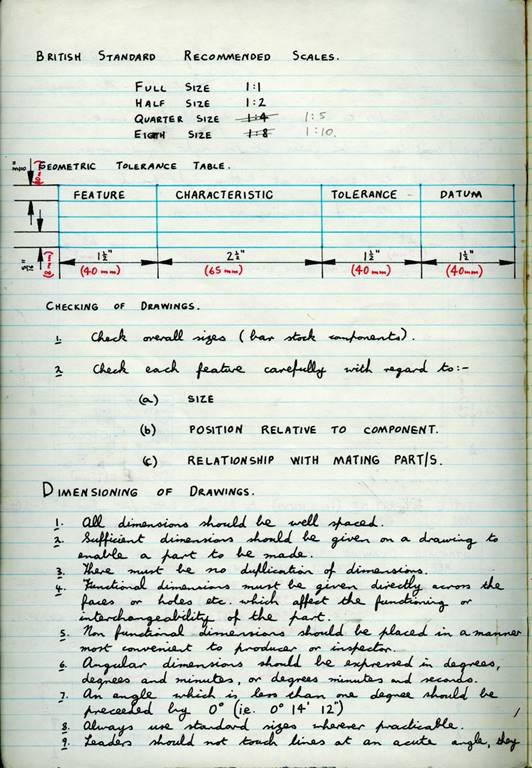 BRITISH STANDARD RECOMMENDED SCALES.
FULL SIZE 1:1
HALF SIZE 1:2
QUARTER SIZE 1:4 1:5
EIGTH SIZE 1:8 1:10.
GEOMETRIC TOLERANCE TABLE.
FEATURE CHARACTERISTIC TOLERANCE DATUM
1½" 2½" 1½" 1½"
(40 mm) (65 mm) (40 mm) (40 mm)
CHECKING OF DRAWINGS.
1. Check overall sizes (bar stock components).
2 Check each feature carefully with regard to:-
(a) SIZE
(b) POSITION RELATIVE TO COMPONENT.
(c) RELATIONSHIP WITH MATING PART/S.
DIMENSIONING OF DRAWINGS.
1. All dimensions should be well spaced.
2. Sufficient dimensions should be given on a drawing to
enable a part to be made.
3. There must be no duplication of dimensions.
4. Functional dimensions must be given directly across the
faces or holes etc. which affect the functioning or
interchangeability of the part.
5. Non functional dimensions should be placed in a manner
most convenient to producer or inspector.
6. Angular dimensions should be expressed in degrees,
degrees and minutes, or degrees minutes and seconds.
7. An angle which is less than one degree should be
preceeded by 0° (ie. 0° 14' 12")
8. Always use standard sizes wherever practicable.
9. Leaders should not touch lines at an acute angle, they